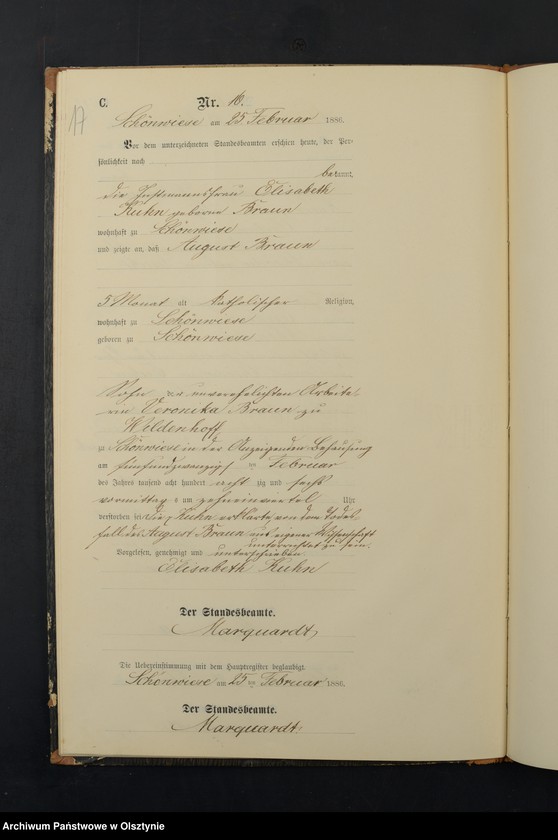 17
C.
Nr. 16.
Schönwiese am 25 Februar 1886.
Vor dem unterzeichneten Standesbeamten erschien heute, der Per-
sönlichkeit nach
bekannt,
die Instmannsfrau Elisabeth
Kuhn geborne Braun
wohnhaft zu Schönwiese
und zeigte an, daß August Braun
5 Monat alt katholischer Religion,
wohnhaft zu Schönwiese
geboren zu Schönwiese
Sohn der unverehelichten Arbeite-
rin Veronika Braun zu
Wildenhoff
zu Schönwiese in der Anzeigenden Behausung
am fünfundzwanzigsten Februar
des Jahres tausend acht hundert acht zig und sechs
vormittag s um zehneinviertel Uhr
verstorben sei. Die Kuhn erklärte, von dem Todes-
fall des August Braun aus eigener Wissenschaft
unterrichtet zu sein.
Vorgelesen, genehmigt und unterschrieben
Elisabeth Kuhn
Der Standesbeamte.
Marquardt
Die Uebereinstimmung mit dem Hauptregister beglaubigt.
Schönwiese am 25 ten Februar 1886.
Der Standesbeamte.
Marquardt.
Archiwum Państwowe w Olsztynie